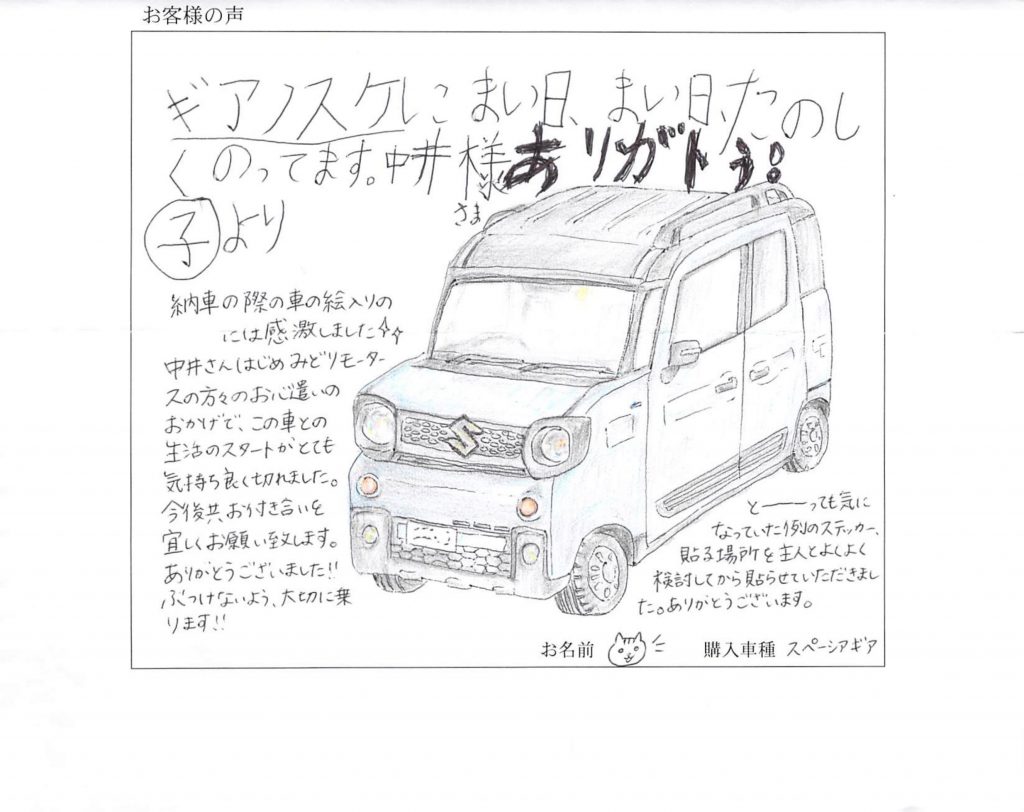 お客様の声
ギアノスケにまい日、まい日、たのし
くのってます。中井様ありガトう!
さま
子より
納車の際の車の絵入りの
には感激しました
中井さんはじめみどりモーター
スの方々のお心遣いの
おかげで、この車との
生活のスタートがとても
気持ち良く切れました。
今後共お付き合いを
宜しくお願い致します。
ありがとうございました!!
ぶつけないよう、大切に乗
ります!!
と――っても気に
なっていた例のステッカー、
貼る場所を主人とよくよく
検討してから貼らせていただきまし
た。ありがとうございます。
お名前
購入車種 スペーシアギア